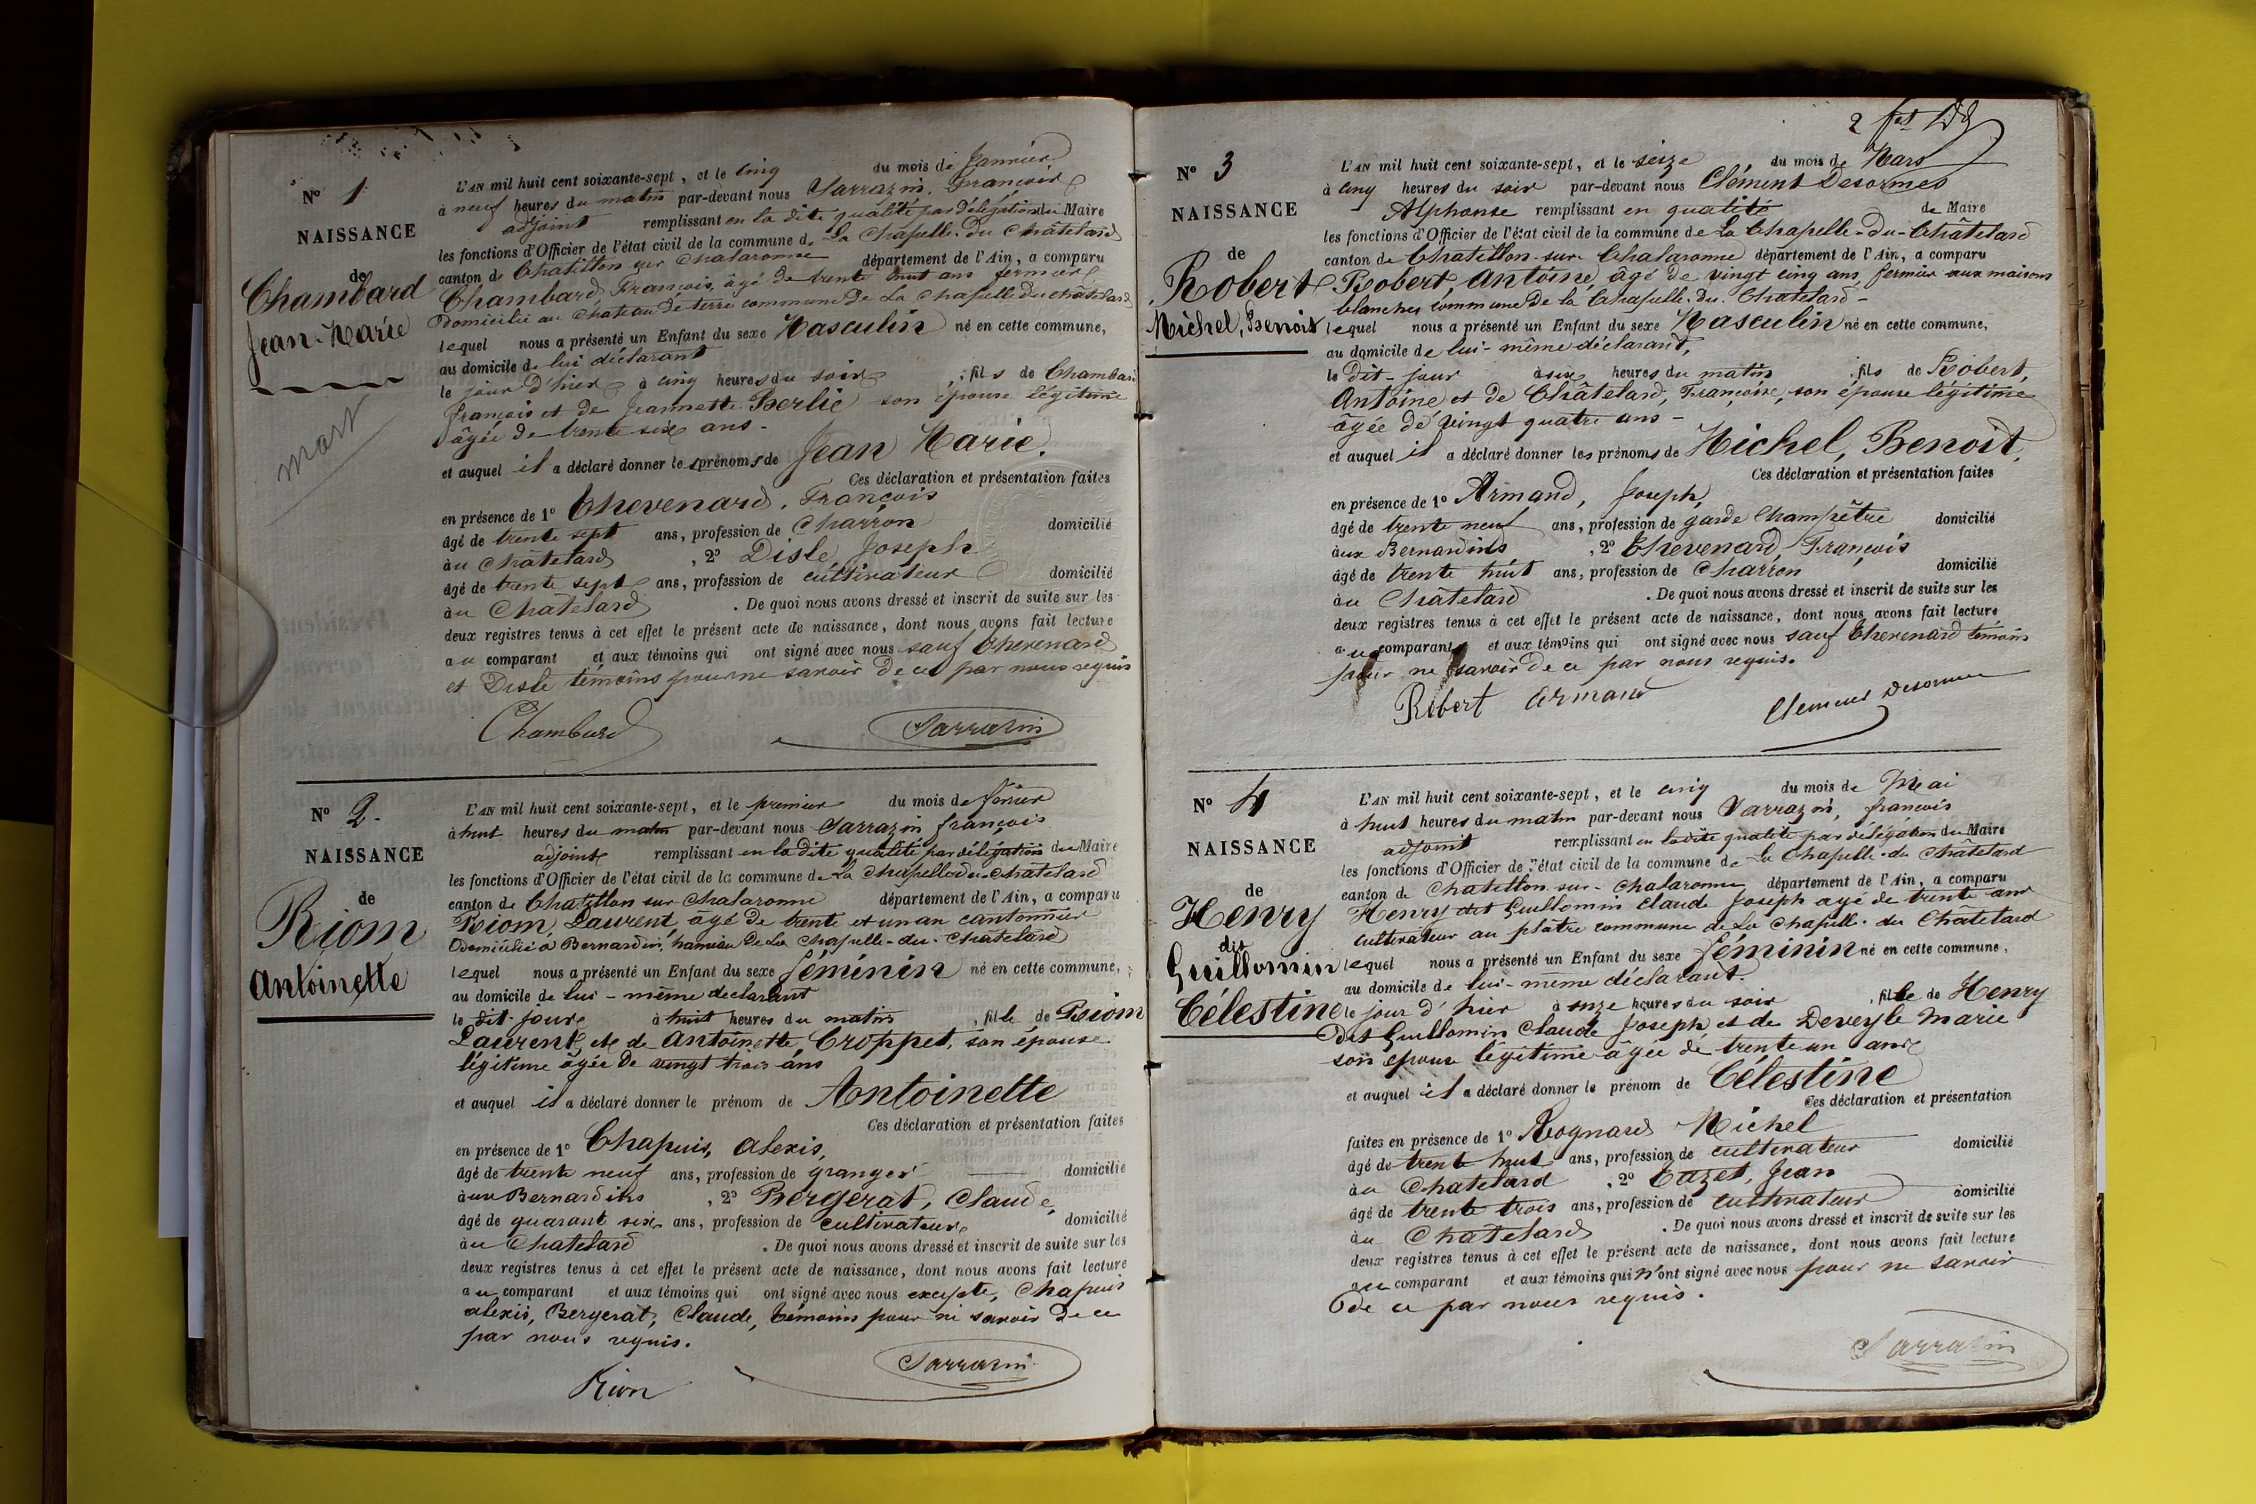 N° 1
NAISSANCE
de
Chambard
Jean-Marie
mort
L'AN mil huit cent soixante-sept, et le cinq du mois de Janvier
à neuf heures du matin par-devant nous Sarrazin, François
adjoint remplissant en la dite qualité par délégation du Maire
les fonctions d'Officier de l'état civil de la commune de La Chapelle-du-Châtelard
canton de Chatillon sur Chalaronne département de l'Ain, a comparu
Chambard, François, âgé de trente huit ans fermier
domicilié au Chateau de terre commune de La Chapelle du châtelard
lequel nous a présenté un Enfant du sexe Masculin né en cette commune,
au domicile de lui déclarant
le jour d'hier à cinq heures du soir, fils de Chambard
François et de Jeannette Berlie son épouse légitime
âgée de trente six ans -
et auquel il a déclaré donner les prénoms de Jean Marie.
Ces déclaration et présentation faites
en présence de 1° Chevenard, François
âgé de trente sept ans, profession de Charron domicilié
au Châtelard, 2° Disle Joseph
âgé de trente sept ans, profession de cultivateur domicilié
au Châtelard. De quoi nous avons dressé et inscrit de suite sur les
deux registres tenus à cet effet le présent acte de naissance, dont nous avons fait lecture
au comparant et aux témoins qui ont signé avec nous sauf Chevenard
et Disle témoins pour ne savoir de ce par nous requis
Chambard Sarrazin
N° 2.
NAISSANCE
de
Riom
Antoinette
L'AN mil huit cent soixante-sept, et le premier du mois de février
à huit heures du matin par-devant nous Sarrazin françois
adjoint remplissant en la dite qualité par délégation du Maire
les fonctions d'Officier de l'état civil de la commune de La Chapelle du Châtelard
canton de Chatillon sur Chalaronne département de l'Ain, a comparu
Riom, Laurent, âgé de trente et un an cantonnier
domicilié à Bernardin, hameau de La Chapelle-du-Châtelard
lequel nous a présenté un Enfant du sexe féminin né en cette commune,
au domicile de lui-même déclarant
le dit-jour à huit heures du matin, fille de Riom
Laurent, et de Antoinette Croppet, son épouse
légitime âgée de vingt trois ans
et auquel il a déclaré donner le prénom de Antoinette
Ces déclaration et présentation faites
en présence de 1° Chapuis, alexis,
âgé de trente neuf ans, profession de granger domicilié
aux Bernardins, 2° Bergerat, Claude,
âgé de quarante six ans, profession de cultivateur domicilié
au Chatelard. De quoi nous avons dressé et inscrit de suite sur les
deux registres tenus à cet effet le présent acte de naissance, dont nous avons fait lecture
au comparant et aux témoins qui ont signé avec nous excepté, Chapuis
alexis, Bergerat, Claude, témoins pour ni savoir de ce
par nous requis.
Rion Sarrazin
2
N° 3
NAISSANCE
de
Robert
Michel, Benoit
L'AN mil huit cent soixante-sept, et le seize du mois de Mars
à cinq heures du soir par-devant nous Clément Desormes
Alphonse remplissant en qualité de Maire
les fonctions d'Officier de l'état civil de la commune de La Chapelle-du-Châtelard
canton de Chatillon-sur-Chalaronne département de l'Ain, a comparu
Robert, Antoine, âgé de vingt cinq ans, fermier aux maisons
blanches commune de la Chapelle-du-Chatelard -
lequel nous a présenté un Enfant du sexe Masculin né en cette commune,
au domicile de lui-même déclarant,
le dit-jour à six heures du matin, fils de Robert,
Antoine et de Châtelard, Françoise, son épouse légitime
âgée de vingt quatre ans -
et auquel il a déclaré donner les prénoms de Michel, Benoit,
Ces déclaration et présentation faites
en présence de 1° Armand, Joseph,
âgé de trente neuf ans, profession de garde Champêtre domicilié
aux Bernardins, 2° Chevenard, François
âgé de trente huit ans, profession de Charron domicilié
au Châtelard. De quoi nous avons dressé et inscrit de suite sur les
deux registres tenus à cet effet le présent acte de naissance, dont nous avons fait lecture
au comparant et aux témoins qui ont signé avec nous sauf Chevenard témoin
pour ne savoir de ce par nous requis.
Robert armand Clement Desormes
N° 4
NAISSANCE
de
Henry
dit
Guillomin
Célestine
L'AN mil huit cent soixante-sept, et le cinq du mois de Mai
à huit heures du matin par-devant nous Sarrazin, françois
adjoint remplissant en la dite qualité par délégation du Maire
les fonctions d'Officier de l'état civil de la commune de La Chapelle-du Châtelard
canton de Chatillon-sur-Chalaronne département de l'Ain, a comparu
Henry dit Guillomin Claude Joseph âgé de trente ans
cultivateur au plâtre commune de La Chapelle-du Châtelard
lequel nous a présenté un Enfant du sexe féminin né en cette commune,
au domicile de lui-même déclarant.
le jour d'hier à onze heures du soir, fille de Henry
dit Guillomin Claude Joseph et de Deveyle Marie
son épouse légitime âgée de trente un ans
et auquel il a déclaré donner le prénom de Célestine
Ces déclaration et présentation
faites en présence de 1° Rognard Michel
âgé de trente huit ans, profession de cultivateur domicilié
au Chatelard, 2° Cazet, Jean
âgé de trente trois ans, profession de cultivateur domicilié
au Chatelard. De quoi nous avons dressé et inscrit de suite sur les
deux registres tenus à cet effet le présent acte de naissance, dont nous avons fait lecture
au comparant et aux témoins qui n'ont signé avec nous pour ne savoir
de ce par nous requis.
Sarrazin